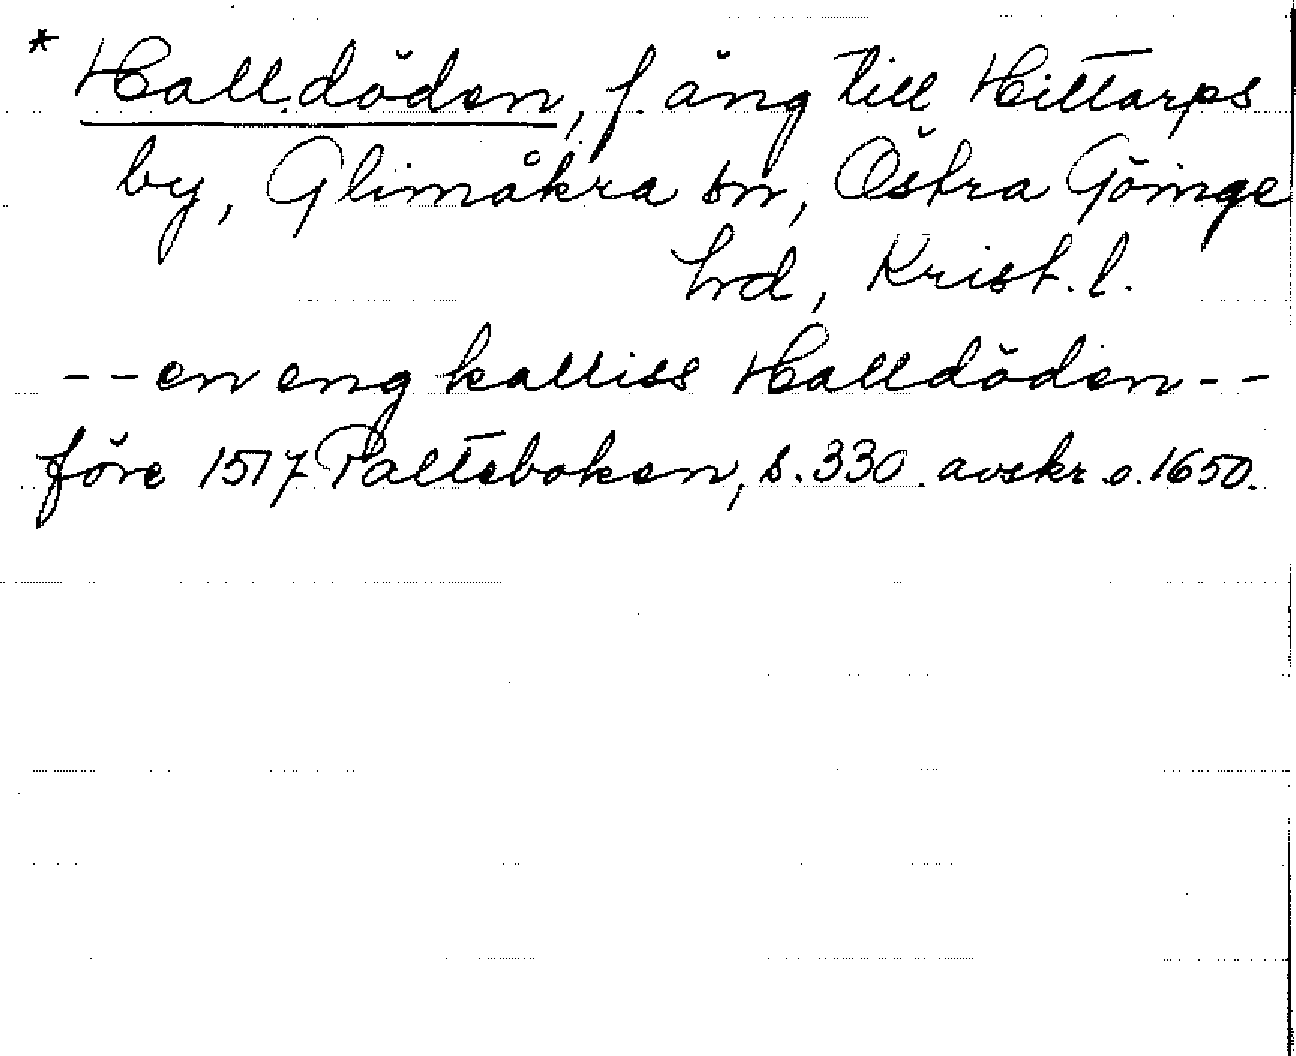 * Halldöden, f. äng till Hittarps
by, Glimåkra sn, Östra Göinge
hrd, Krist. l.
-- en eng kalliss Halldöden --
före 1517 Palteboken, s. 330. avskr. o. 1650.